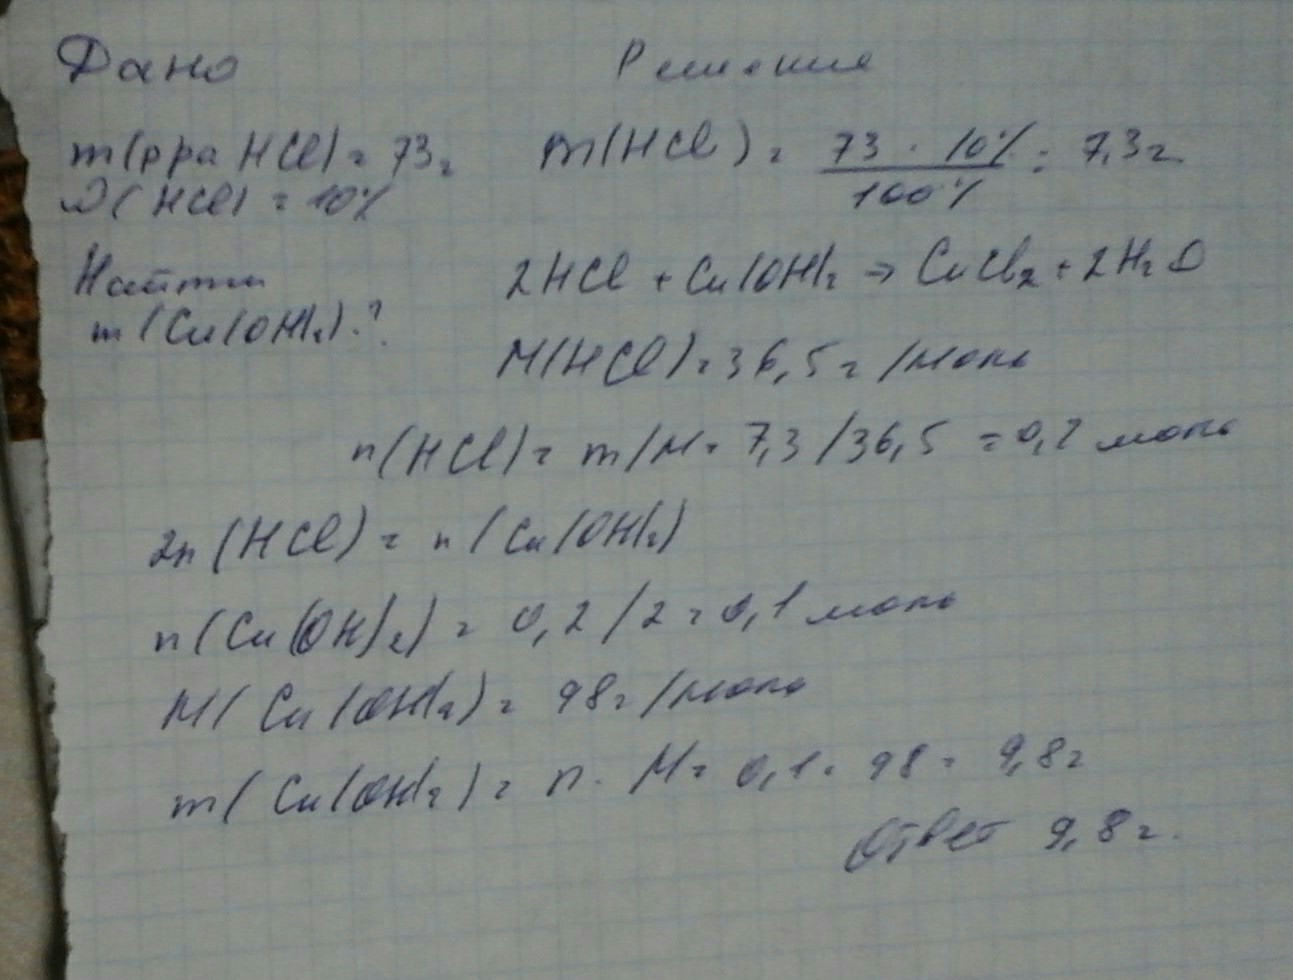 Дано
Решение
m(рра HCl) = 73г
m(HCl) = 73 · 10% / 100% = 7,3г
ω(HCl) = 10%
Найти
m(Cu(OH)2)-?
2HCl + Cu(OH)2 → CuCl2 + 2H2O
M(HCl) = 36,5г/моль
n(HCl) = m/M = 7,3/36,5 = 0,2 моль
2n(HCl) = n(Cu(OH)2)
n(Cu(OH)2) = 0,2/2 = 0,1 моль
M(Cu(OH)2) = 98г/моль
m(Cu(OH)2) = n · M = 0,1 · 98 = 9,8г
Ответ 9,8г.